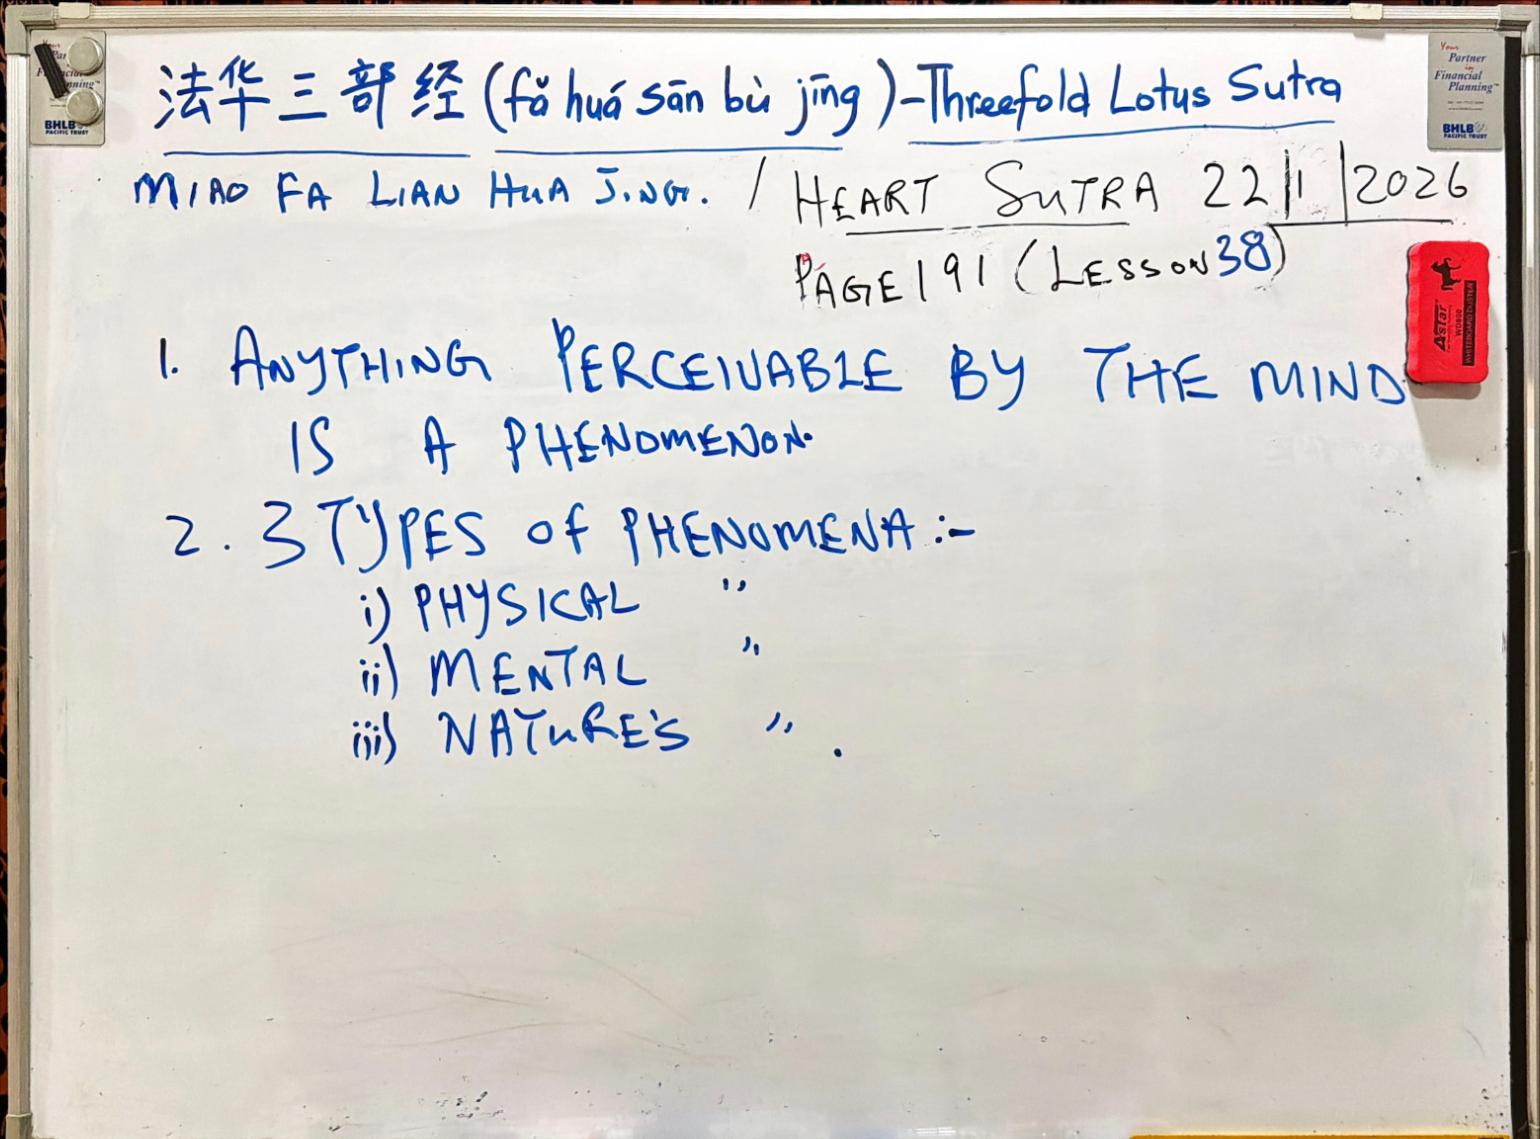 法华三部经 (fǎ huá sān bù jīng) - Threefold Lotus Sutra
MIAO FA LIAN HUA JING. / HEART SUTRA 22/1/2026
PAGE 191 (LESSON 38)
1. ANYTHING PERCEIVABLE BY THE MIND
IS A PHENOMENON.
2. 3 TYPES OF PHENOMENA :-
i) PHYSICAL "
ii) MENTAL "
iii) NATURE'S " .
Your
Partner
in
Financial
Planning
BHLB
PACIFIC TRUST
BHLB
PACIFIC TRUST
Astar
WHITEBOARD DUSTER